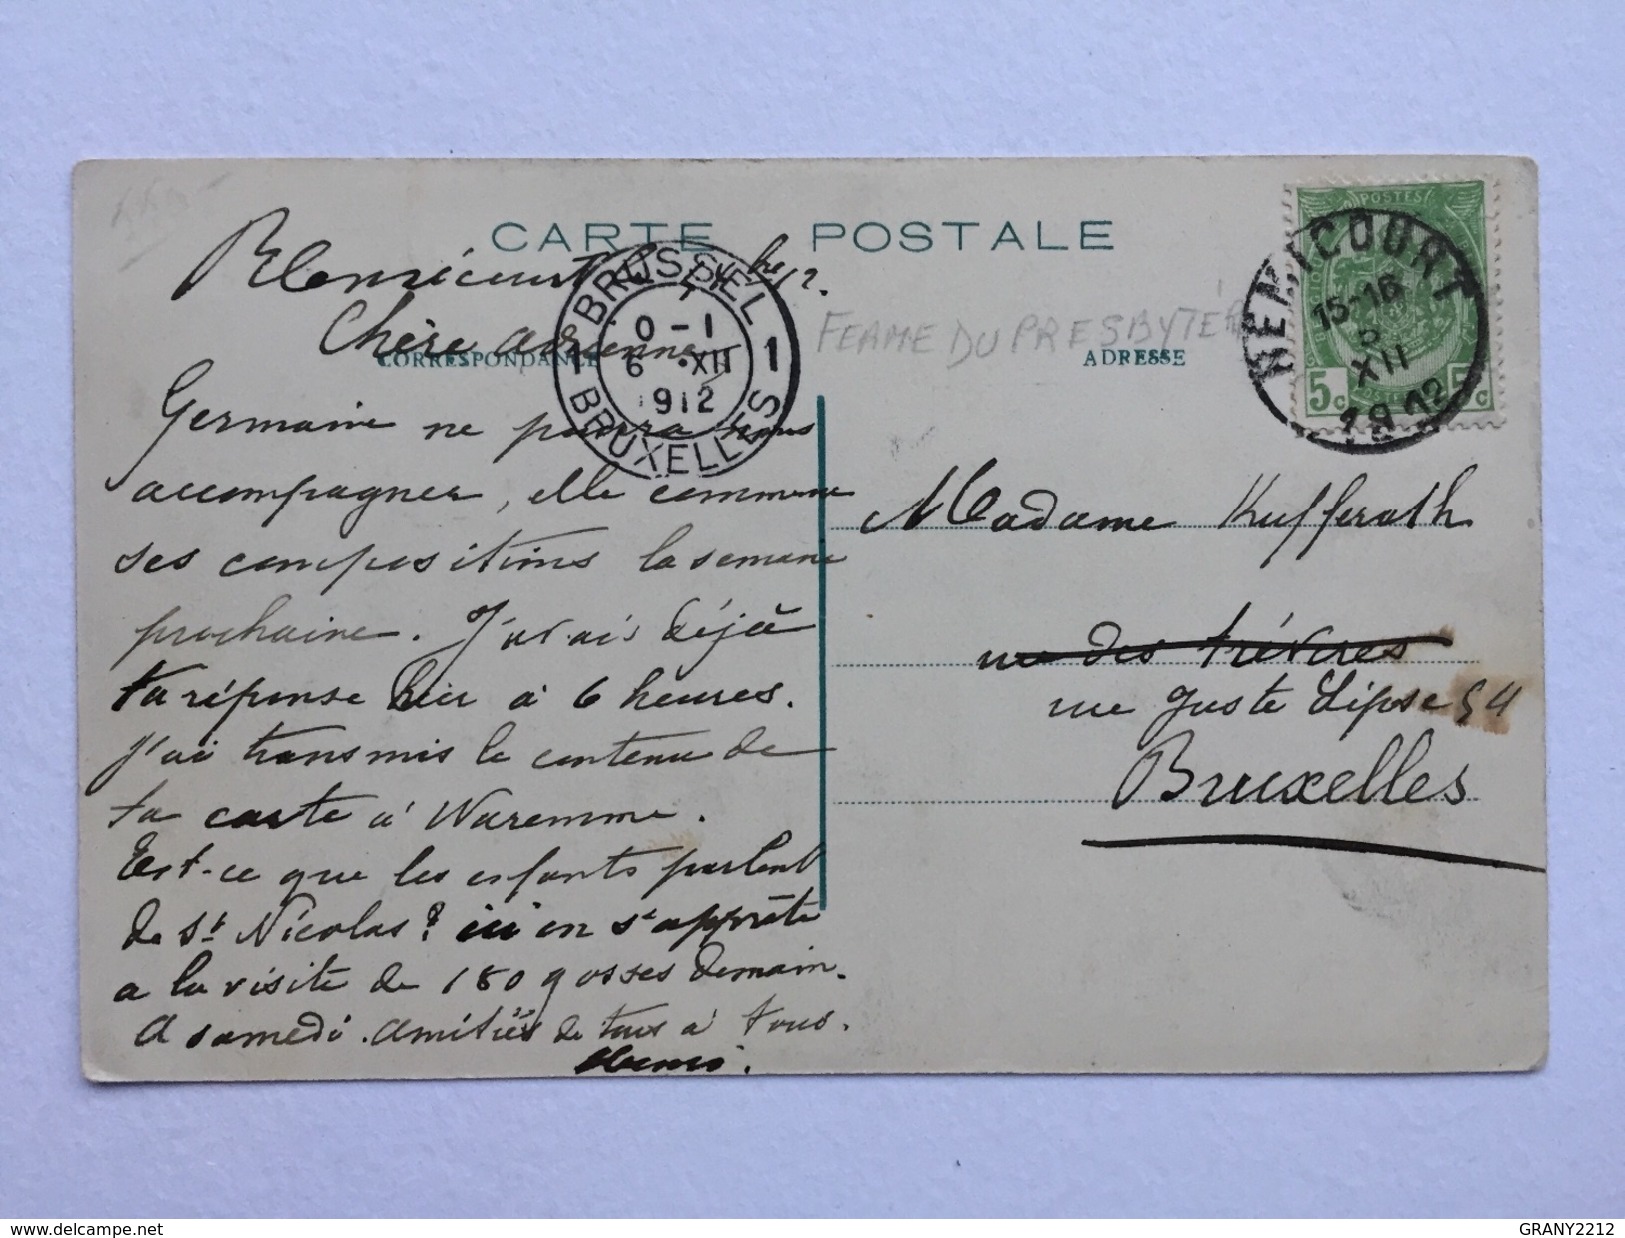 CARTE POSTALE
CORRESPONDANCE
ADRESSE
FERME DU PRESBYTÈRE
Remicourt
Chère Adrienne
Germaine ne pourra nous
accompagner, elle commence
ses compositions la semaine
prochaine. J'avais déjà
ta réponse hier à 6 heures.
J'ai transmis le contenu de
ta carte à Waremme.
Est-ce que les enfants parlent
de St Nicolas? ici on s'apprête
a la visite de 180 gosses demain.
A samedi. Amitiés de tous à tous.
BRUSSEL 1
0-1
6 XII
1912
1 BRUXELLES
REMICOURT
15-16
5
XII
1912
POSTES
5c 5c
Madame Kufferath
rue des trévires
rue Juste Lipse 54
Bruxelles
http://www.delcampe.net
GRANY2212